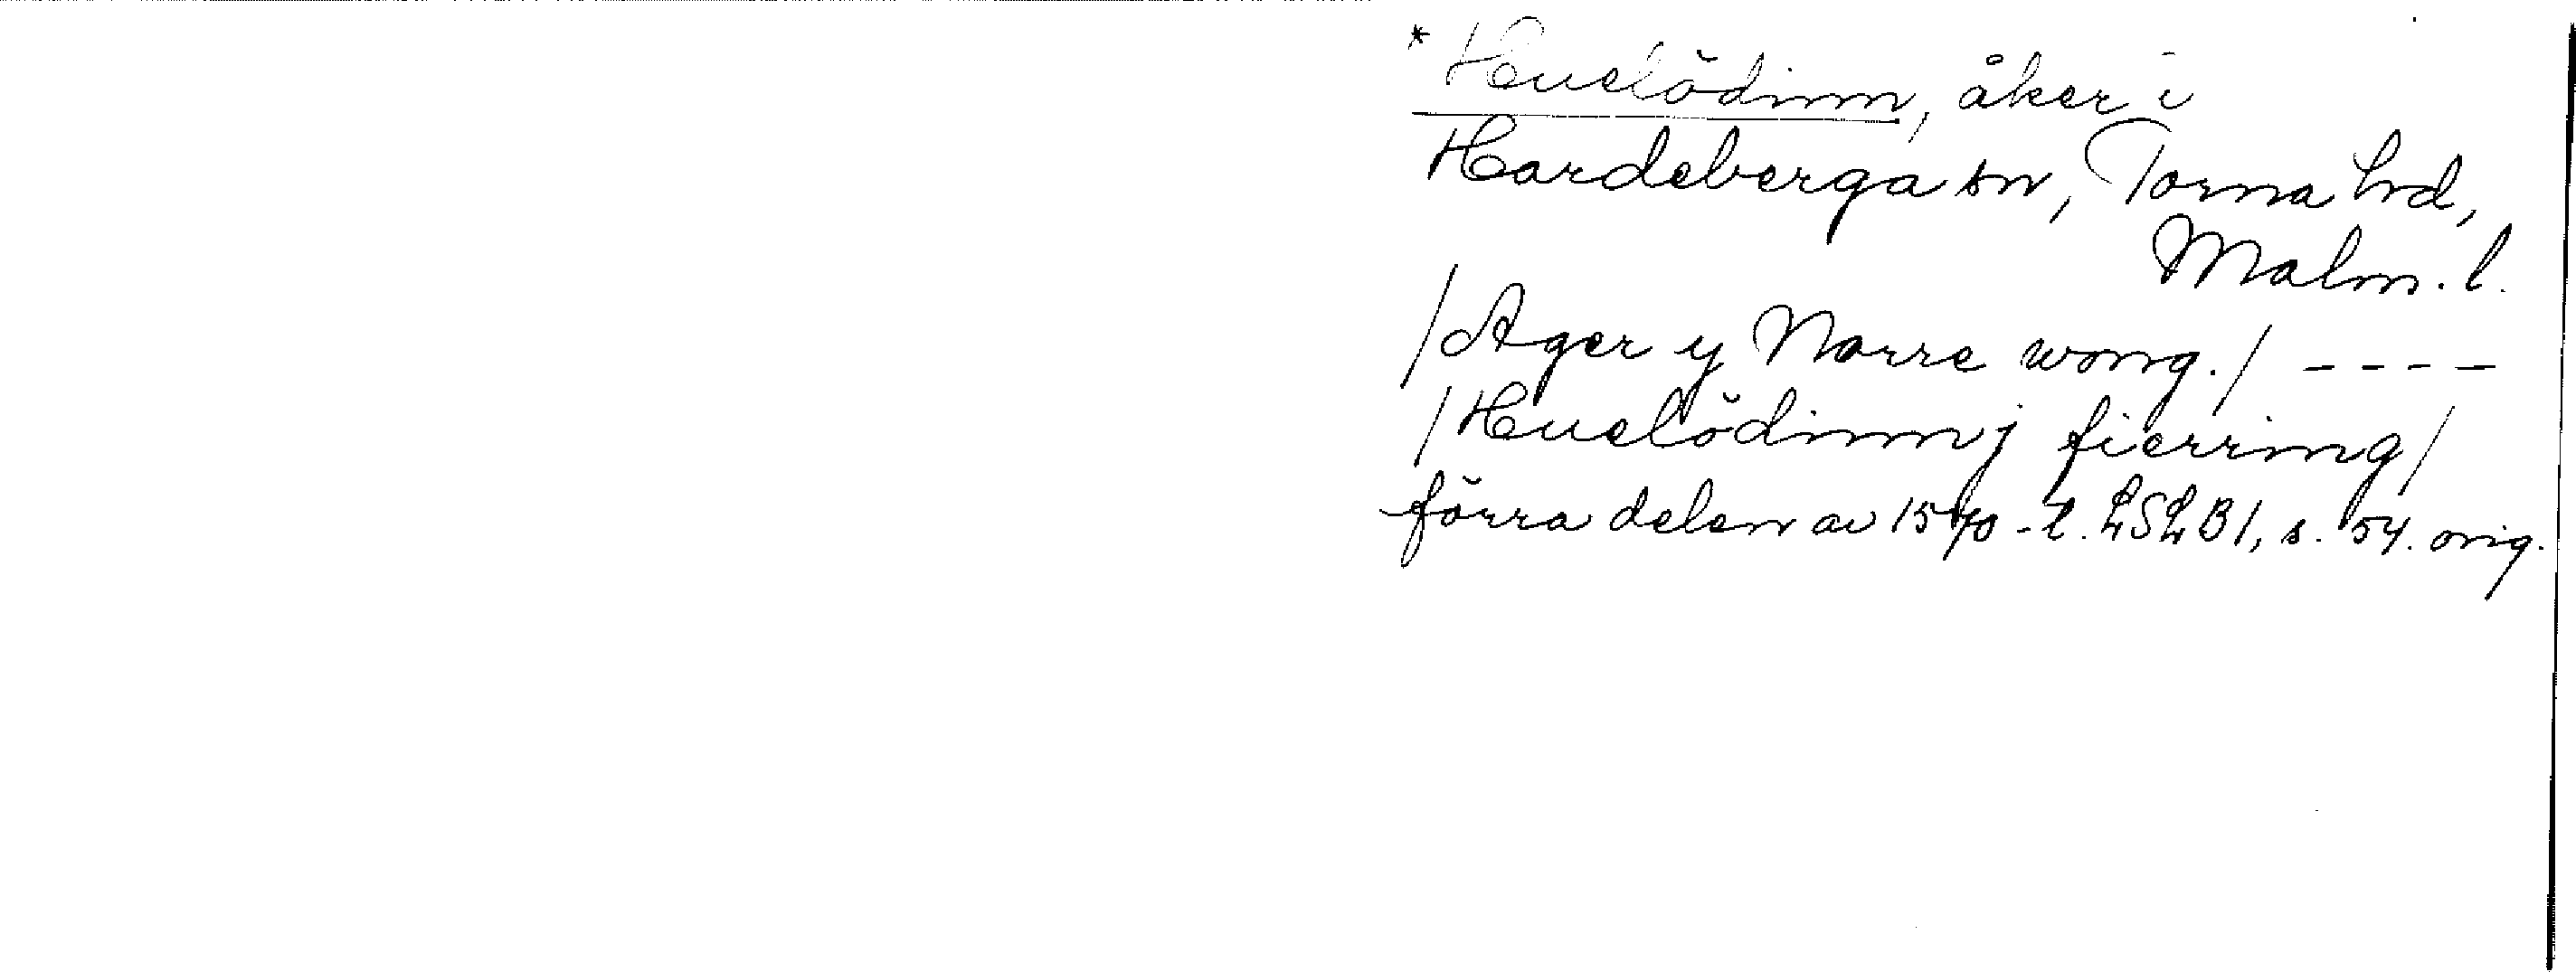 * Huelödinn, åker i
Hardeberga sn, Torna hd,
Malm. l.
/Ager y Norre wong./ - - - -
/Huelödinn j fierring/
förra delen av 1570-t. LSLB1, s. 54. orig.